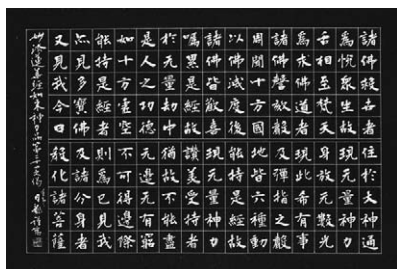 諸佛救世者住於大神通
為悅眾生故現元量神力
舌相至梵天身放元數光
為求佛道者現此希有事
諸佛謦欬聲及彈指之聲
周聞十方國地皆六種動
以佛滅度後能持是經故
諸佛皆歡喜現元量神力
囑累是經故讚美受持者
於元量劫中猶故不能盡
是人之功德元邊元有窮
如十方虛空不可得邊際
能持是經者則為已見我
亦見多寶佛及諸分身者
又見我今日教化諸菩薩
妙法蓮華經如來神力品第二十一偈